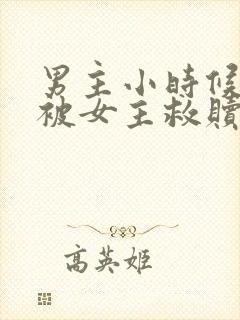 男主小時候
被女主救贖
高英姬